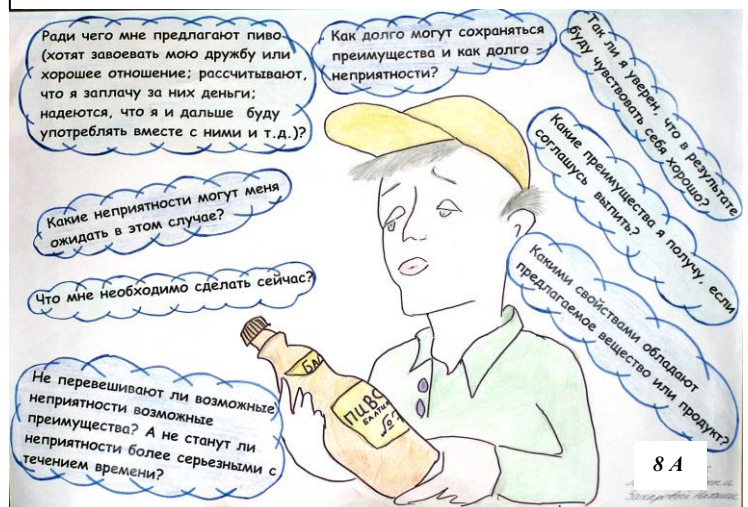 Ради чего мне предлагают пиво
(хотят завоевать мою дружбу или
хорошее отношение; рассчитывают,
что я заплачу за них деньги;
надеются, что я и дальше буду
употреблять вместе с ними и т.д.)?
Как долго могут сохраняться
преимущества и как долго –
неприятности?
Так ли я уверен, что в результате
буду чувствовать себя хорошо?
Какие преимущества я получу, если
соглашусь выпить?
Какие неприятности могут меня
ожидать в этом случае?
Какими свойствами обладают
предлагаемое вещество или продукт?
Что мне необходимо сделать сейчас?
Не перевешивают ли возможные
неприятности возможные
преимущества? А не станут ли
неприятности более серьезными с
течением времени?
БАЛ
ПИВО
БАЛТИКА
8 А
Захаровой